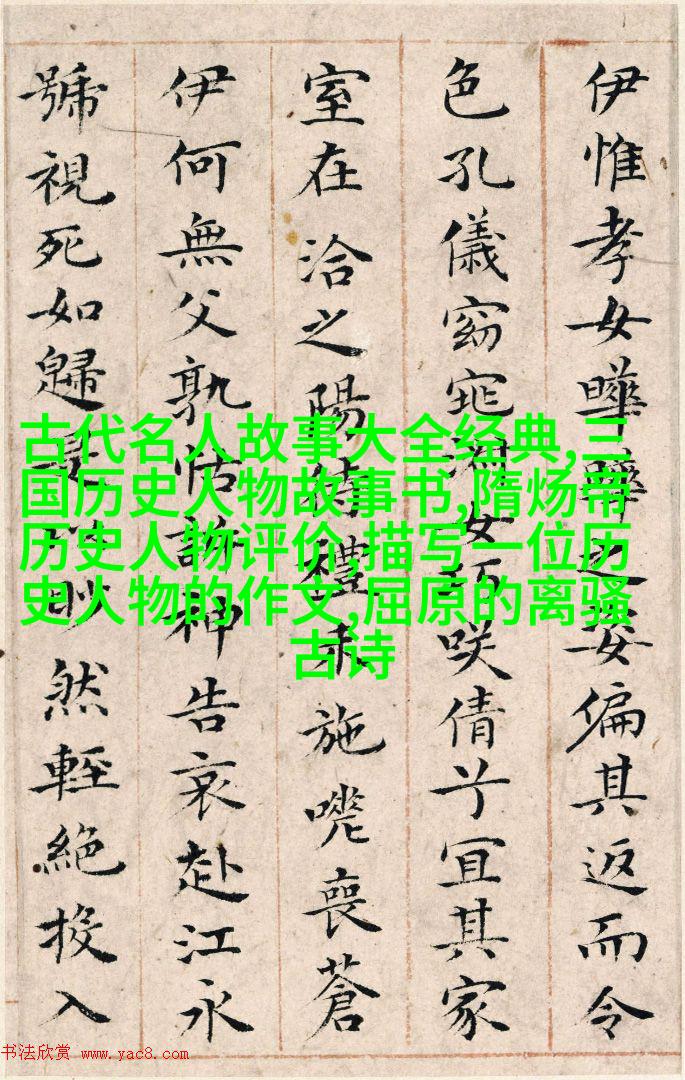 伊惟孝女曄曄之姿偏其返而令
色孔儀窈窕淑女巧咲倩兮宜其家
室在洽之陽待禮未施嗟喪蒼
伊何無父孰怙訴神告哀赴江永
號視死如歸是以眇然輕絕投入
古代名人故事大全经典,三
国历史人物故事书,隋炀帝
历史人物评价,描写一位历
史人物的作文,屈原的离骚
古诗
书法欣赏 www.yac8.com